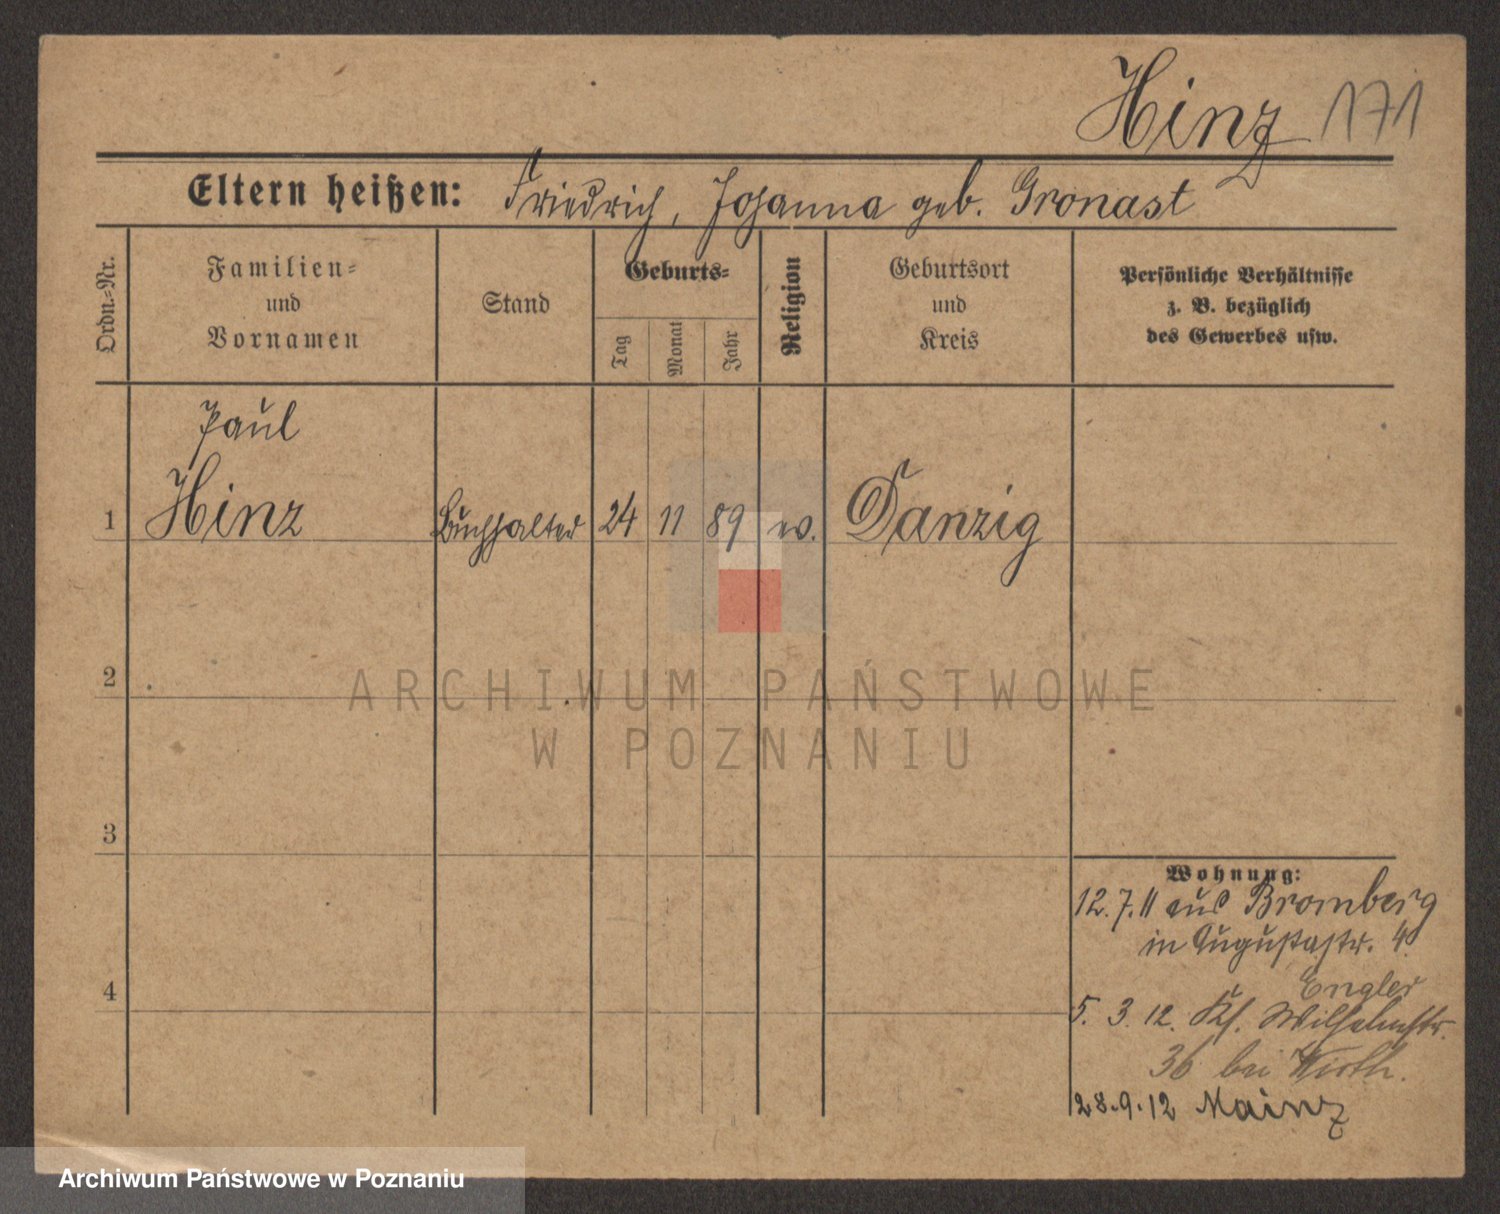 Hinz 171
Eltern heißen: Friedrich, Johanna geb. Gronast
Ordn.-Nr.
Familien-
und
Vornamen
Stand
Geburts-
Tag
Monat
Jahr
Religion
Geburtsort
und
Kreis
Persönliche Verhältnisse
z. B. bezüglich
des Gewerbes usw.
Paul
1 Hinz Buchhalter 24 11 89 ev. Danzig
2
ARCHIWUM PAŃSTWOWE
W POZNANIU
3
Wohnung:
12.7.11 aus Bromberg
in Augustastr. 4
Engler
4
5. 3. 12. Wilhelmstr.
36 bei
28.9.12 Mainz
Archiwum Państwowe w Poznaniu